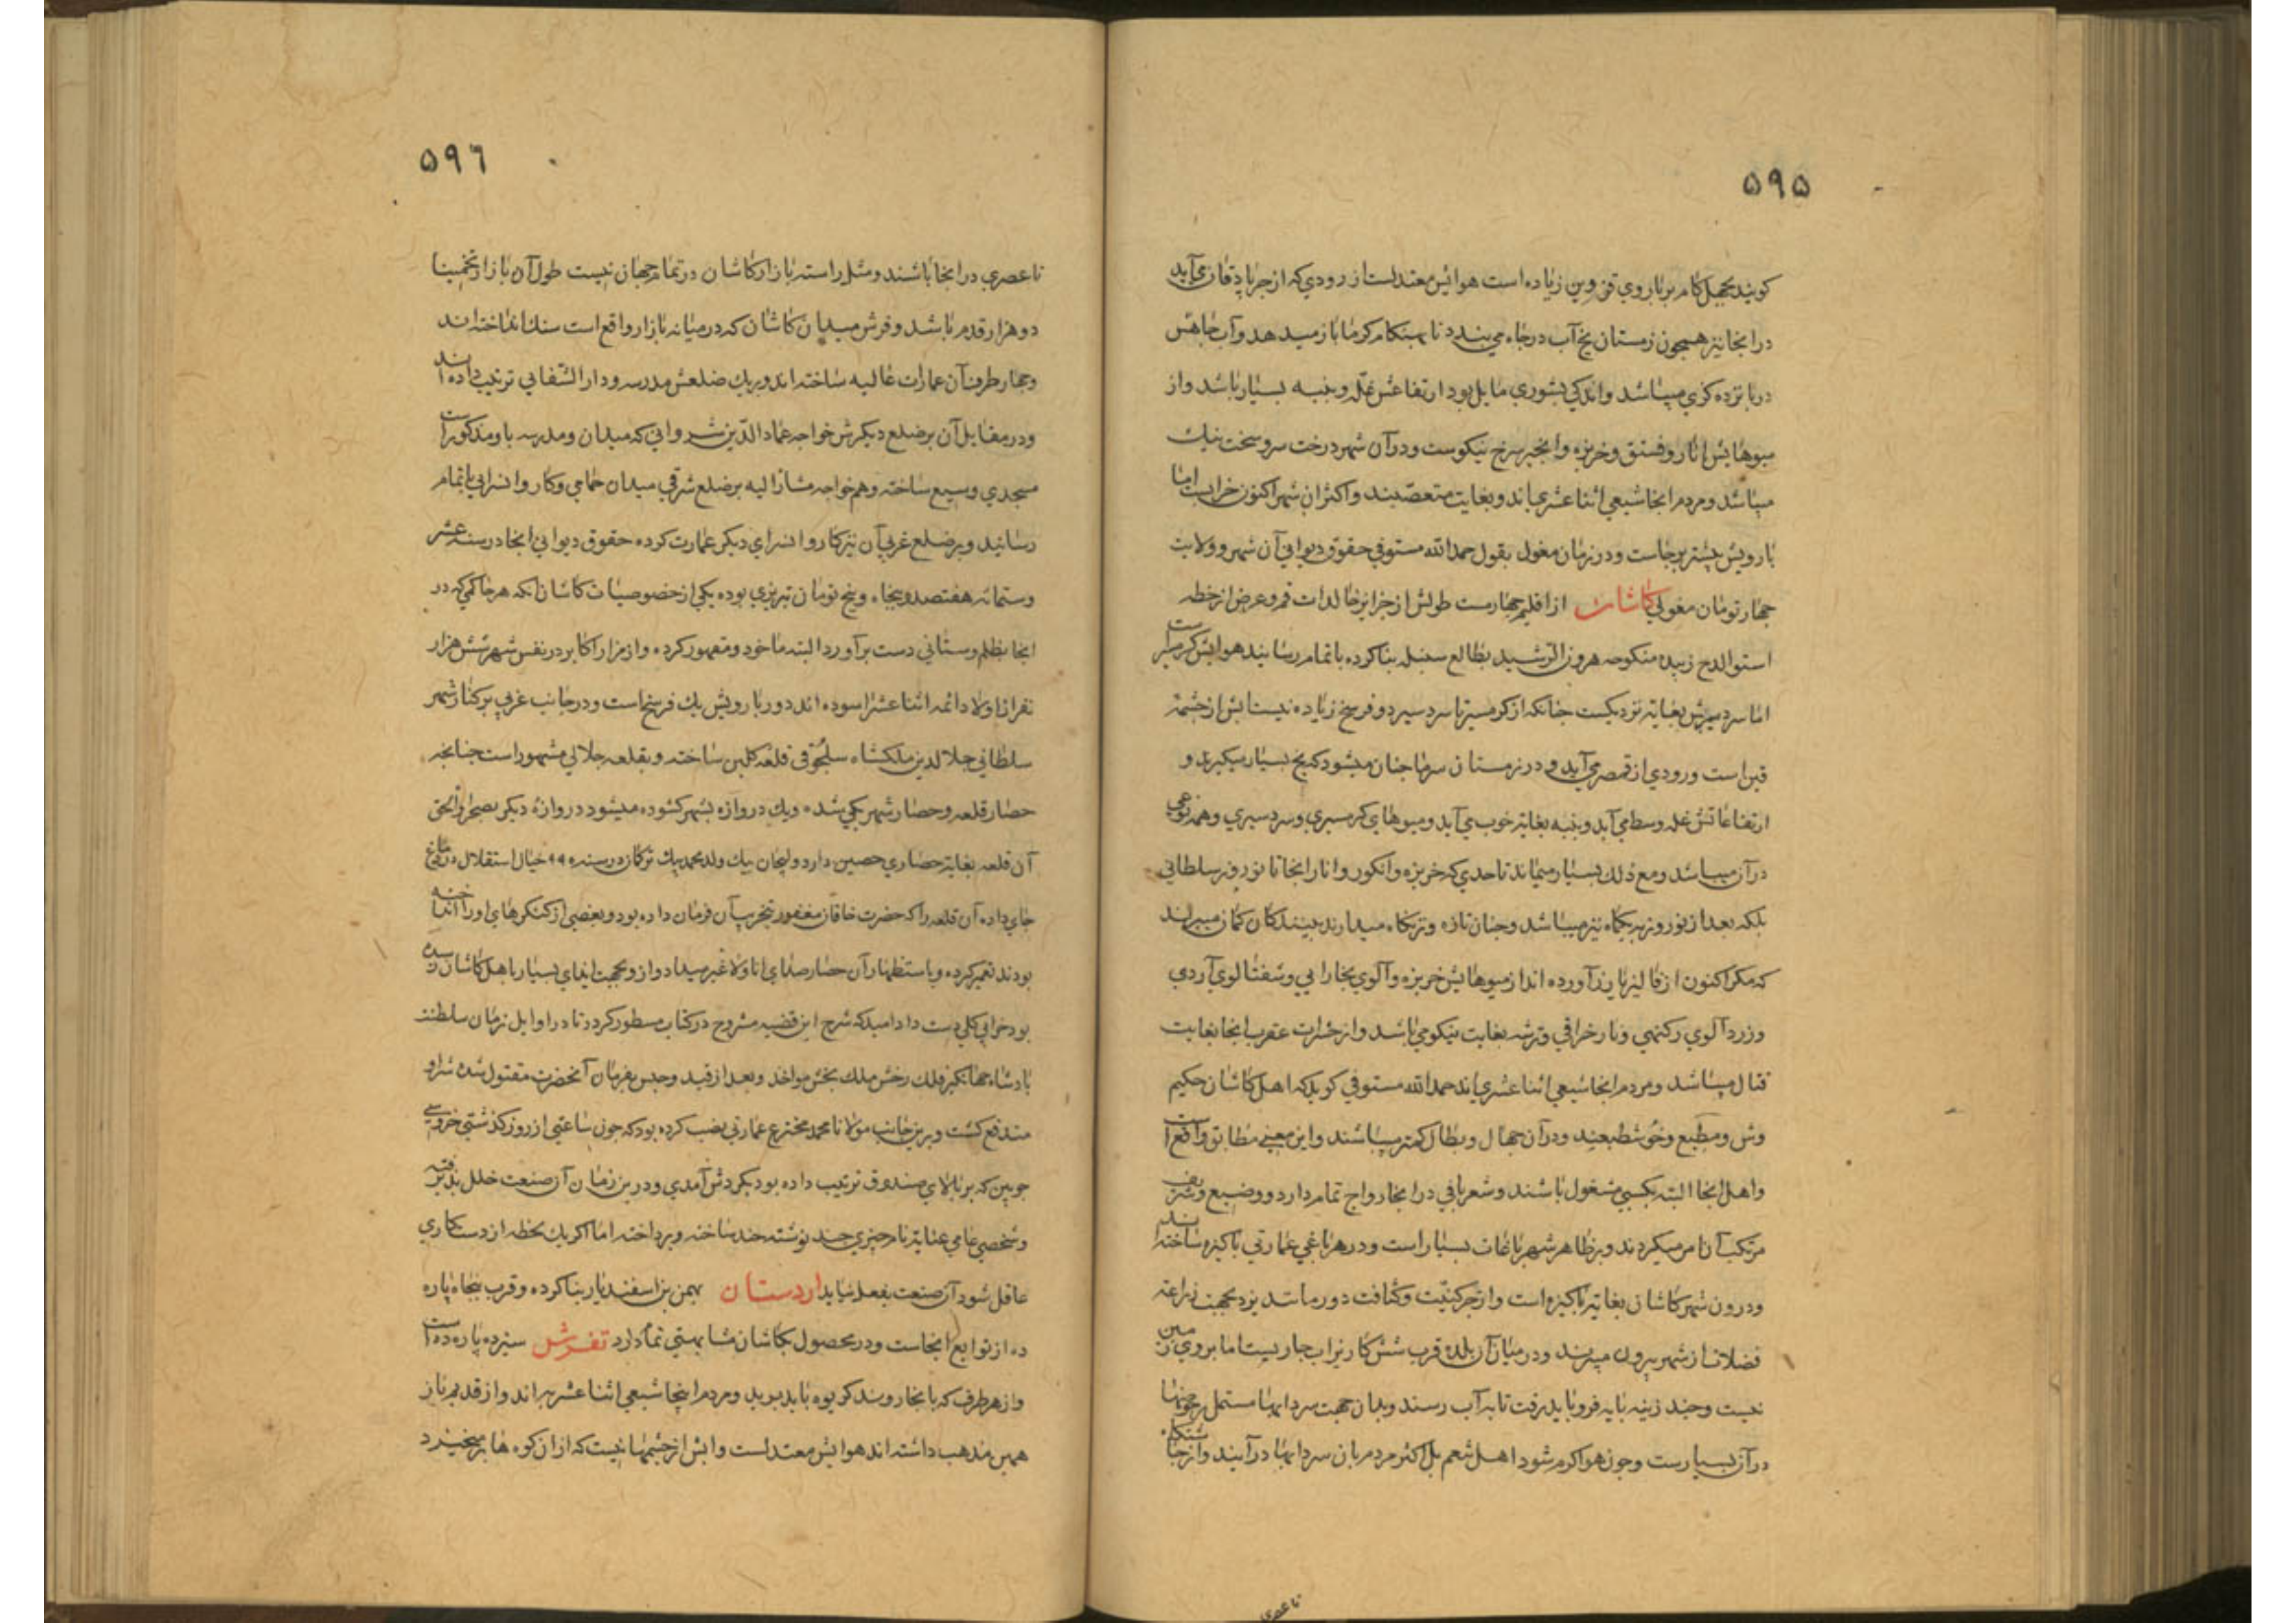 ۵۹۵
کویند بچهل کام بر باروی قزوین زیاده است هوایش معتدلست از رودی که از جربادقان می‌آید
در انجا نیز همچون زمستان یخ آب در چاه می‌بندند تا بهنکام کرما باز میدهد و آب چاهش
در پانزده کزی میباشد و اندکی بشوری مایل بود ارتفاعش غله و پنبه بسیار باشد و از
میوهایش انار و فستق و خربزه و انجیر سرخ نیکوست و در آن شهر درخت سرو سخت نیک
میباشد و مردم انجا شیعی اثنا عشری‌اند و بغایت متعصبند و اکثر آن شهر اکنون خرابست اما
بارویش بیشتر برجاست و در زمان مغول بقول حمدالله مستوفی حقوق دیوانی آن شهر و ولایت
چهار تومان مغولی کاشان از اقلیم چهارمست طولش از جزایر خالدات قم و عرض از خطه
استوا لدح زبیده منکوحه هرون الرشید بطالع سنبله بنا کرده باتمام رسانید هوایش کرمسیر است
اما سردسیرش بغایه نزدیکست چنانکه از کرمسیر تا سردسیر دو فرسخ زیاده نیست ابش از چشمه
قبر است و رودی از قمصر می‌آید و در زمستان سرما چنان میشود که یخ بسیار میکیرند و
ارتفاعاتش غله وسط می‌آید و پنبه بغایه خوب می‌آید و میوهای کرمسیری و سردسیری و همه نوعی
در آن میباشد و مع ذلک بسیار میماند تا حدی که خربزه و انکور و انار انجا تا نوروز سلطانی
بلکه بعد از نوروز به پنجاه نیز میباشد و چنان تازه و تر نکاه میدارند بینندکان کمان میبرند
که مکر اکنون از فالیز باز آورده‌اند از میوهایش خربزه و آلوی بخارایی و شفتالوی آردی
وزردآلوی رکنهی و نار خرافی و ترشه بغایت نیکو می‌باشد و از حشرات عقرب انجا بغایت
قتال میباشد و مردم انجا شیعی اثنا عشری‌اند حمدالله مستوفی کوید که اهل کاشان حکیم
وش و مطبع و خوش طبعند و در آن جهال و بطال کمتر میباشند و این معنی مطابق واقع است
و اهل انجا البته بکسبی مشغول باشند و شعربافی در انجا رواج تمام دارد و وضیع و شریف
مرتکب آن امر میکردند و بر ظاهر شهر باغات بسیار است و در هر باغی عمارتی پاکیزه ساخته‌اند
و درون شهر کاشان بغایه پاکیزه است و از چرکنیت و کثافت دور ماند یزد بجهت زراعه
فضلات از شهر بیرون میبرند و در میان آن بلده قرب شش کاریز اب جاریست اما بروی زمین
نیست و چند زینه پایه فرو باید رفت تا به آب رسند و بدان جهت سردابها مشتمل بر حوضها
در آن بسیارست و چون هوا کرم شود اهل تنعم بل اکثر مردم بان سردابها درآیند و از خانه تنکاه
تا عصری
۵۹٦
تا عصری در انجا باشند و مثل راسته بازار کاشان در تمام جهان نیست طول آن بازار تخمینا
دو هزار قدم باشد و فرش میدان کاشان که در میانه بازار واقع است سنک انداخته‌اند
و چهار طرف آن عمارات عالیه ساخته‌اند و بر یک ضلعش مدرسه و دار الشفایی ترتیب داده‌اند
و در مقابل آن بر ضلع دیکرش خواجه عماد الدین شروانی که میدان و مدرسه باو مذکور است
مسجدی وسیع ساخته و هم خواجه مشار الیه بر ضلع شرقی میدان حمامی و کاروانسرایی باتمام
رسانید و بر ضلع غربی آن نیز کاروانسرای دیکر عمارت کرده حقوق دیوانی انجا در سنه عشر
وستمائه هفتصد و پنجاه و پنج تومان تبریزی بوده یکی از خصوصیات کاشان انکه هر حاکمی که در
انجا بظلم و ستانی دست برآورد البته ماخوذ و مقهور کرده و از مزار اکابر در نفس شهر شش هزار
نفر از اولاد ائمه اثنا عشر اسوده‌اند دور بارویش یک فرسخ است و در جانب غربی بر کنار شهر
سلطانی جلالدین ملکشاه سلجوقی قلعه کلین ساخته و بقلعه جلالی مشهور است چنانچه
حصار قلعه و حصار شهر یکی شده و یک دروازه بشهر کشوده میشود دروازه دیکر بصحرا والحق
آن قلعه بغایه حصاری حصین دارد ولیجان بیک ولد محمد بیک ترکمان در سنه ۹۹۵ خیال استقلال در دماغ
جای داده آن قلعه را که حضرت خاقان مغفور بتخریب آن فرمان داده بود و بعضی از کنکرهای او را انداخته
بودند تعمیر کرده و باستظهار آن حصار صدای انا ولا غیر میداد و از و بجهت ایذای بسیار باهل کاشان رسیده
بود خرابی کلی دست داد امید که شرح این قضیه مشروح در کتاب مسطور کردد تا در اوایل زمان سلطنت
پادشاه جهانکیر فلک رخش ملک بخش مواخذ و بعد از قید و حبس بفرمان آنحضرت مقتول شده شر او
مندفع کشت و برین جانب مولانا محمد مخترع عمارتی نصب کرده بود که چون ساعتی از روز کذشتی خروسی
چوبین که بر بالای صندوق ترتیب داده بود بکردش آمدی و درین زمان آن صنعت خلل پذیرفته
و شخصی عامی عنایه نام چیزی چند نوشته چند ساخته و پرداخته اما اکر یک لحظه از دستکاری
غافل شود آن صنعت بفعل نیاید اردستان بهمن بن اسفندیار بنا کرده و قرب پنجاه پاره
ده از توابع انجاست و در محصول بکاشان مشابهتی تمام دارد تفرش سیزده پاره ده است
و از هر طرف که بانجا روند کریوه باید برید و مردم اینجا شیعی اثنا عشریه‌اند و از قدیم باز
همین مذهب داشته‌اند هوایش معتدلست و ابش از چشمهائیست که از ان کوه‌ها برمیخیزد